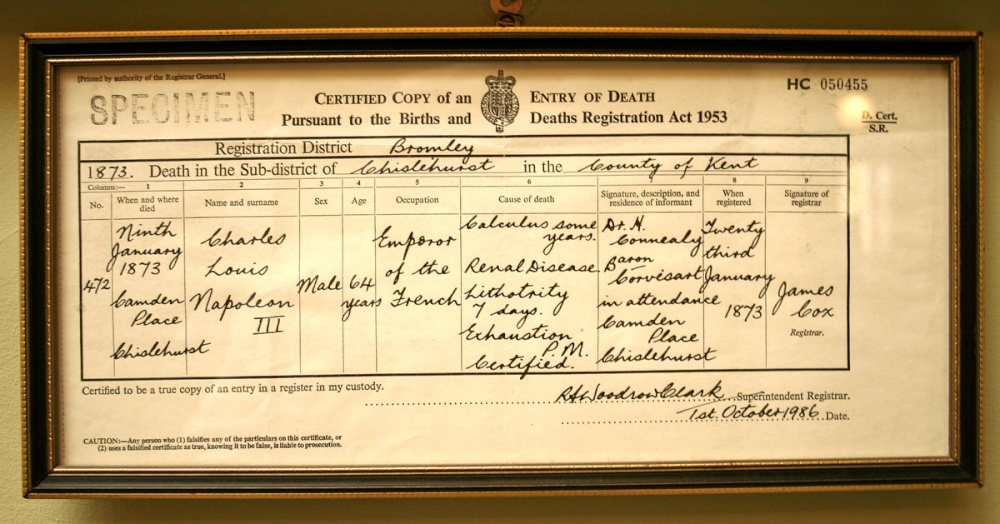 [Printed by authority of the Registrar General.]
HC 050455
SPECIMEN
CERTIFIED COPY OF AN ENTRY OF DEATH
Pursuant to the Births and Deaths Registration Act 1953
D. Cert.
S.R.
Registration District Bromley
1873. Death in the Sub-district of Chislehurst in the County of Kent
Columns:— 1 2 3 4 5 6 7 8 9
No. When and where died Name and surname Sex Age Occupation Cause of death Signature, description, and residence of informant When registered Signature of registrar
472
Ninth
January
1873
Camden
Place
Chislehurst
Charles
Louis
Napoleon
III
Male
64
years
Emperor
of the
French
Calculus some
years.
Renal Disease
Lithotrity
7 days.
Exhaustion
P.M.
Certified.
Dr. H.
Connealy
Baron
Corvisart
in attendance
Camden
Place
Chislehurst
Twenty
third
January
1873
James
Cox
Registrar.
Certified to be a true copy of an entry in a register in my custody.
R A Woodrow Clark Superintendent Registrar.
1st. October 1986 Date.
CAUTION:—Any person who (1) falsifies any of the particulars on this certificate, or
(2) uses a falsified certificate as true, knowing it to be false, is liable to prosecution.